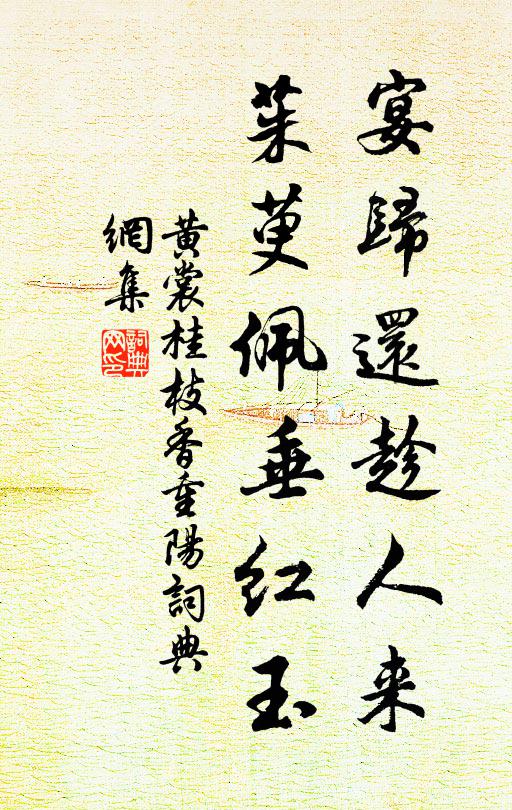 宴歸還趁人来
茱萸佩垂紅玉
黄裳桂枝香重陽詞典
網集
詞典
网印